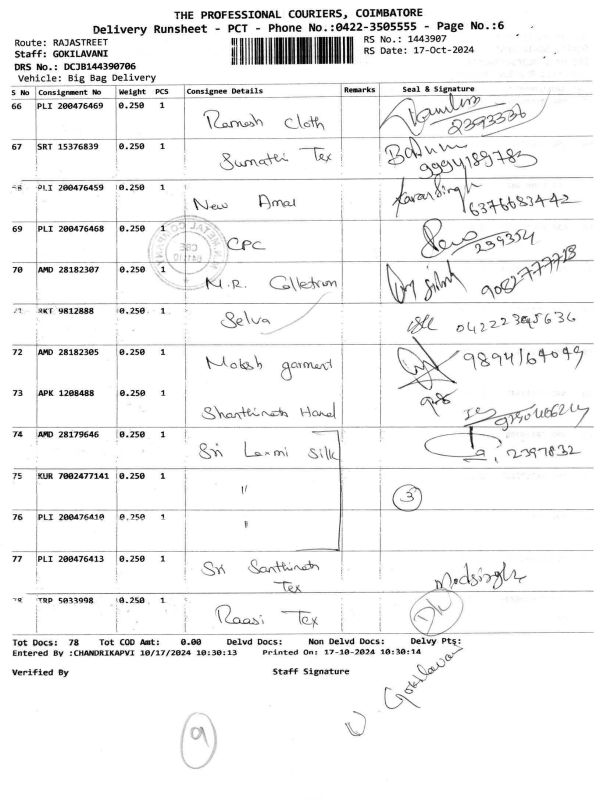 THE PROFESSIONAL COURIERS, COIMBATORE
Delivery Runsheet - PCT - Phone No.:0422-3505555 - Page No.:6
Route: RAJASTREET
RS No.: 1443907
Staff: GOKILAVANI
RS Date: 17-Oct-2024
DRS No.: DCJB144390706
Vehicle: Big Bag Delivery
S No Consignment No Weight PCS Consignee Details Remarks Seal & Signature
66 PLI 200476469 0.250 1 Ramesh Cloth
2393336
67 SRT 15376839 0.250 1 Sumathi Tex
9994189783
68 PLI 200476459 0.250 1 New Amal KaranSingh
6376683442
69 PLI 200476468 0.250 1 CPC
239354
70 AMD 28182307 0.250 1 M.R. Colletrum 9082777713
71 RKT 9812888 0.250 1 Selva 04222395636
72 AMD 28182305 0.250 1 Moksh garment 9894164049
73 APK 1208488 0.250 1 Shanthinath Hand
74 AMD 28179646 0.250 1 Sri Laxmi Silk 2397832
75 KUR 7002477141 0.250 1 " 3
76 PLI 200476410 0.250 1 "
77 PLI 200476413 0.250 1 Sri Santhinath
Tex
78 TRP 5033998 0.250 1 Raasi Tex D/L
Tot Docs: 78 Tot COD Amt: 0.00 Delvd Docs: Non Delvd Docs: Delvy Pts:
Entered By :CHANDRIKAPVI 10/17/2024 10:30:13 Printed On: 17-10-2024 10:30:14
Verified By Staff Signature
V. Gokilavani
9